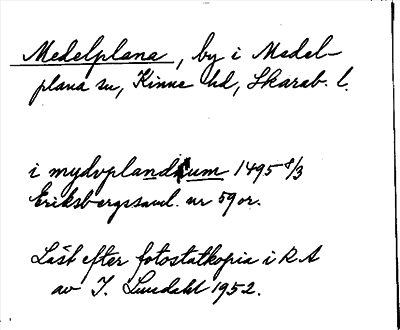 Medelplana, by i Medel-
plana sn, Kinne hd, Skarab. l.
i mydvplandium 1495 8/3
Eriksbergssaml. nr 59 or.
Läst efter fotostatkopia i RA
av I. Lundahl 1952.